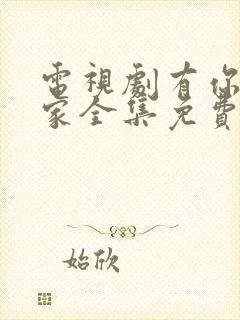 電視劇有你
家全集免費
始欣